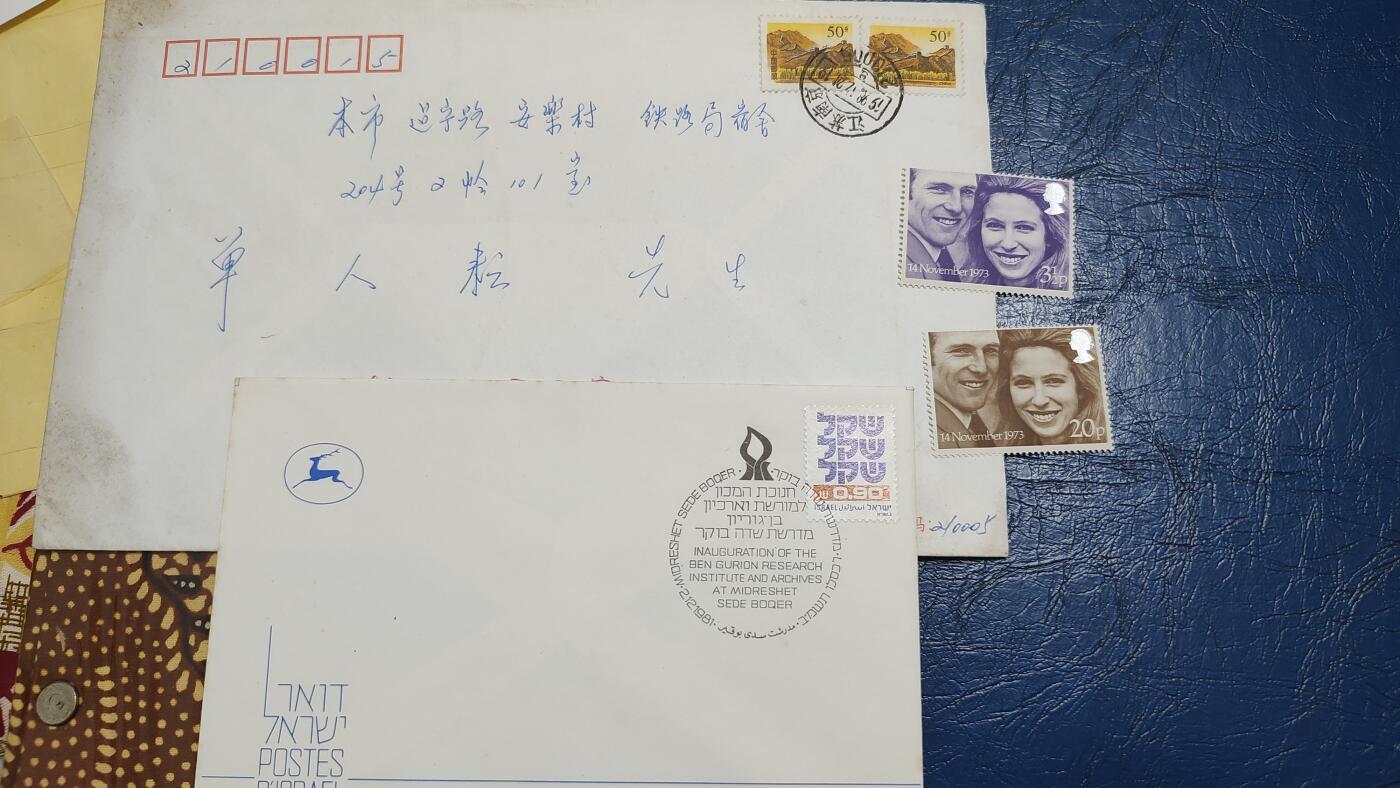 210015
50分
50分
本市 迈字路 安樂村 铁路局宿舍
204号 2幢 101室
单人耘先生
14 November 1973
3½p
14 November 1973
20p
210005
שקל
שקל
שקל
0.90
ISRAEL اسرائيل ישראל
חנוכת המכון
למורשת וארכיון
בן־גוריון
מדרשת שדה בוקר
INAUGURATION OF THE
BEN GURION RESEARCH
INSTITUTE AND ARCHIVES
AT MIDRESHET
SEDE BOQER
MIDRESHET SEDE BOQER
2.12.1981
مدرشت سدي بوقير
דואר
ישראל
POSTES
D'ISRAEL